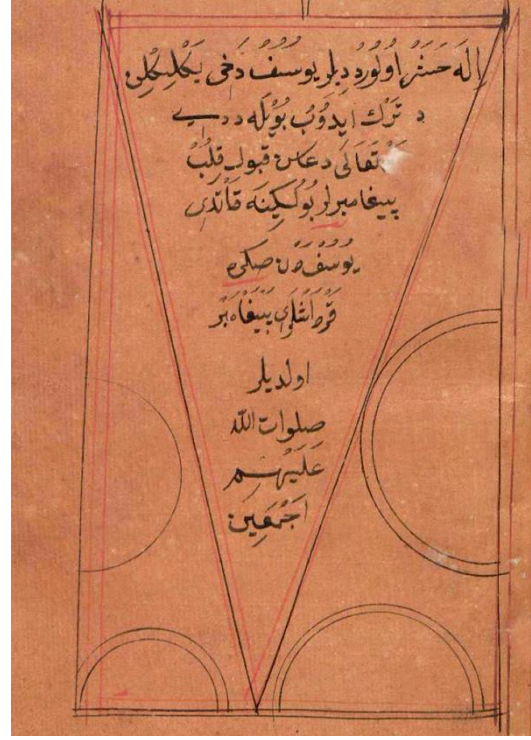 اِلَه حَشَر اولُورد ديلر يوسف دَخِى
د تَرك ايدوُب بُويْله ددى
تَعَالَى دعاسن قبول قِلُبْ
پيغامبرلر بُولكِينَه قَاتدى
يوسف دن صكره
قرداشلرى پيغامبر
اولديلر
صِلوات الله
عَلَيْهِم
اَجْمَعِين